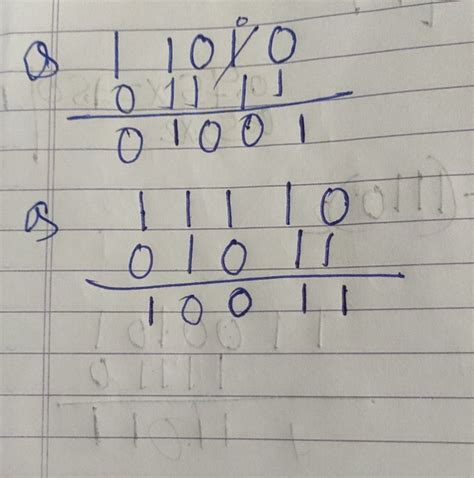 Q 1 1 0 1 0
0
0 1 1 1 1
0 1 0 0 1
Q 1 1 1 1 0
0 1 0 1 1
1 0 0 1 1